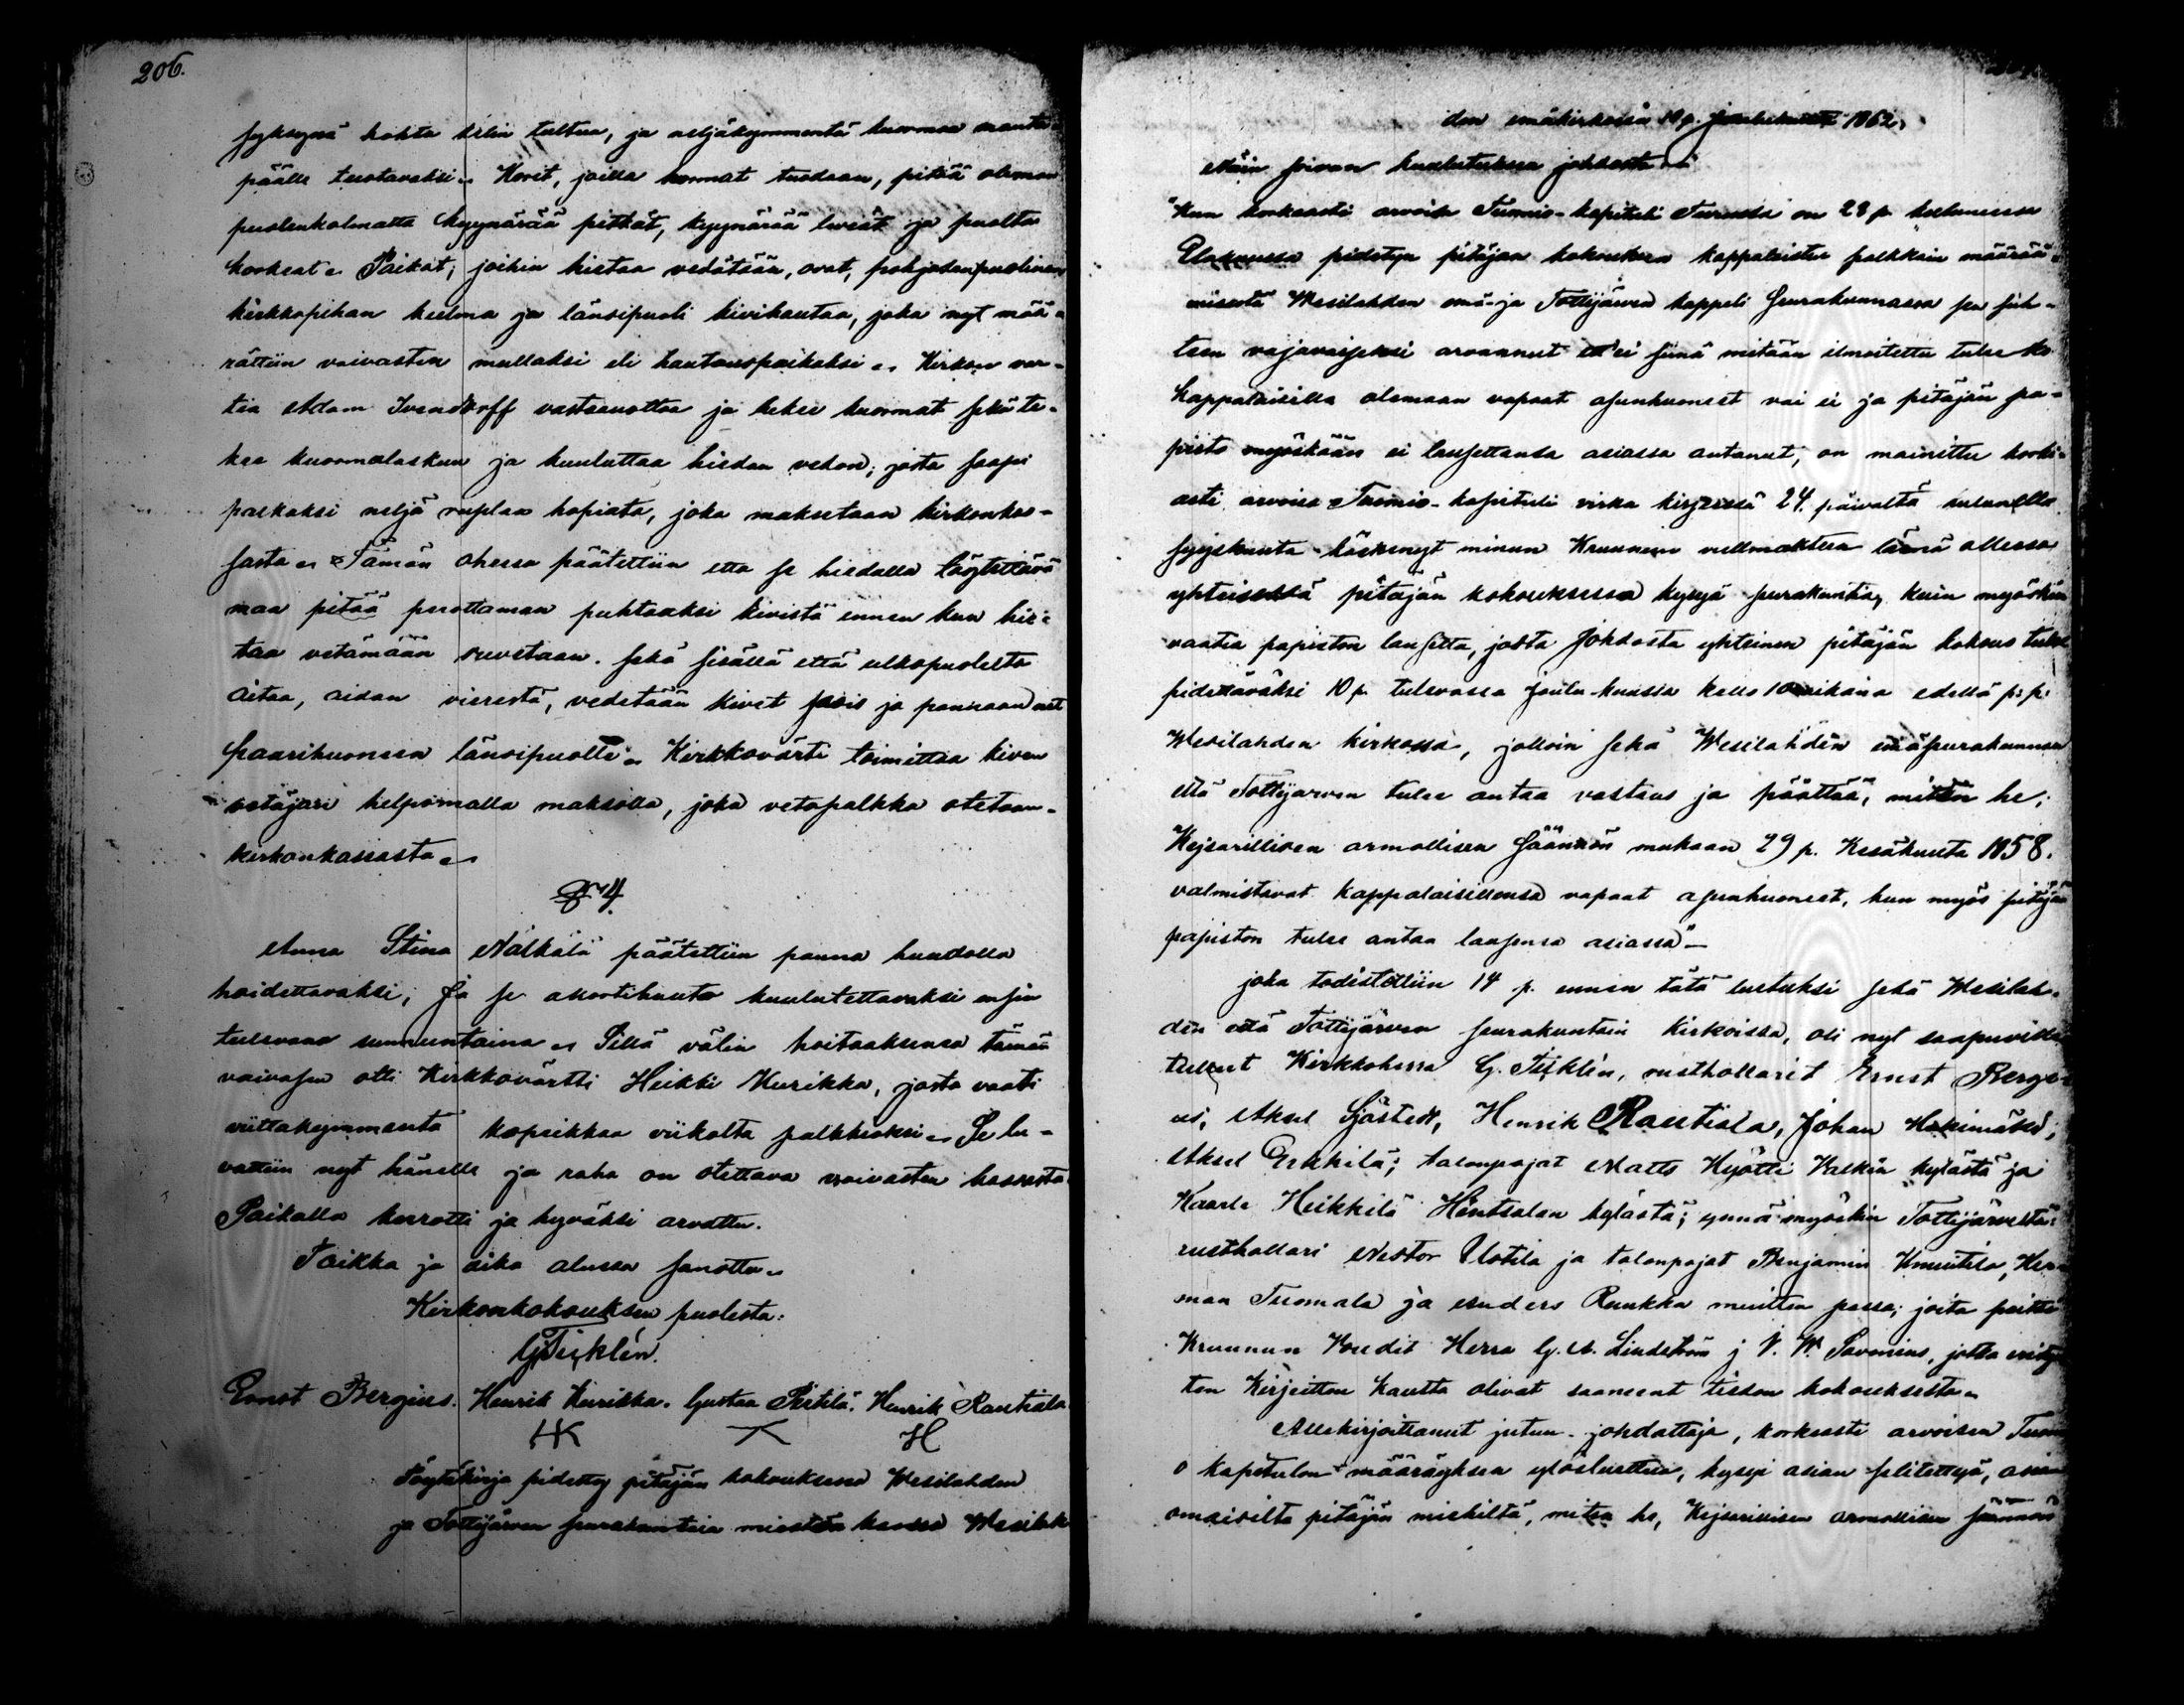 206.
syksynä kohta kelin tultua, ja neljäkymmentä kuormaa
päälle tuotavaksi. Korit, joilla kuormat tuodaan, pitää oleman
puolenkolmatta kyynärää pitkät, kyynärää leveät ja puolta
korkeat. Paikat, joihin hietaa vedätään, ovat, pohjoisenpuolinen
kirkkopihan kulma ja länsipuoli kivihautaa, joka nyt mää-
rättiin vaivasten mullaksi eli hautauspaikaksi. Kirkon var-
tia Adam Ivendorff vastaanottaa ja lukee kuormat sekä te-
kee kuormalaskun ja kuuluttaa hiedan vedon; josta saapi
palkaksi neljä ruplaa hopiata, joka maksetaan kirkonkas-
sasta. Tämän ohessa päätettiin että se hiedalla täytettävä
maa pitää perattaman puhtaaksi kivistä ennen kun hie-
taa vetämään ruvetaan. Sekä sisällä että ulkopuolelta
aitaa, aidan vierestä, vedetään kivet pois ja pannaan net
saarihuoneen länsipuolle. Kirkkovärti toimittaa kiven
vetäjäri helpoimalla maksolla, joka vetopalkka otetaan
kirkonkassasta.
§ 4.
Anna Stina Nälkälä päätettiin panna huudolla
hoidettavaksi; Ja se akortihuuto kuulutettavaksi ensin
tulevana sunnuntaina. Sillä välin hoitaaksensa tämän
vaivasen otti Kirkkovärtti Heikki Kurikka, josta vaati
viittakymmentä kopeikkaa viikolta palkkioksi. Se lu-
vattiin nyt hänelle ja raha on otettava vaivasten kassasta
Paikalla kerrotti ja hyväksi arvattu.
Paikka ja aika alussa sanottu.
Kirkonkokouksen puolesta:
G Ticklén.
Ernst Bergius. Henrik Kurikka. Gustaa Pirtilä. Henrik Rautiala
HK H
Pöytäkirja pidetty pitäjän kokouksessa Wesilahden
ja Tottijärven seurakuntain miesten kanssa Wesilah
den emäkirkossa 10 p. joulukuuta 1862.
Näin soivan kuulutuksen johdosta
"Kun korkeasti arvoisa Tuomio-kapituli Turussa on 28 p. kuluneessa
Elokuussa pidetyn pitäjän kokouksen kappalaisten palkkain määrää-
misestä Wesilahden emä- ja Tottijärven kappeli seurakunnassa sen suh-
teen vajavaiseksi arvannut ett'ei siinä mitään ilmoitettu tulee ko
kappalaisilla olemaan vapaat asunhuoneet vai ei ja pitäjän pa-
pisto myöskään ei lausettansa asiassa antanut, on mainittu korki-
asti arvoisa Tuomio-kapituli virka kirjeessä 24. päivältä kuluvalla
syyskuuta käskenyt minun Kruunun vallmaktin läsnä ollessa
yhteisessä pitäjän kokouksessa kysyä seurakuntia, kuin myöskin
vaatia papiston lausetta, josta johdosta yhteinen pitäjän kokous tulee
pidettäväksi 10 p. tulevassa joulu-kuussa kello 10 aikana edellä p:p:
Wesilahden kirkossa, jolloin sekä Wesilahden emäseurakunnan
että Tottijärven tulee antaa vastaus ja päättää, miten he,
Kejsarillisen armollisen säännön mukaan 29 p. Kesäkuuta 1858.
valmistavat kappalaisillensa vapaat asunhuoneet, kun myös pitäjän
papiston tulee antaa lausensa asiassa"
joka todistettiin 14 p. ennen tätä luetuksi sekä Wesilah-
den että Tottijärven seurakuntain kirkoissa, oli nyt saapuvilla
tulleet Kirkkoherra G. Ticklén, rusthollarit Ernst Bergi-
us, Aksel Sjöstedt, Henrik Rautiala, Johan Hakimäki,
Aksel Erkkilä; talonpojat Matts Hyötti Valkin kylästä ja
Kaarle Heikkilä Hintsalan kylästä; ynnä myöskin Tottijärveltä:
rusthollari Nestor Uotila ja talonpojat Benjamin Knuutila, Her
man Tuomala ja Anders Ruukka muitten parsa; joita paitsi
Kruunun Voudit Herra G. A. Lindström j V. W. Savonius, jotka erityi
ten kirjeitten kautta olivat saaneet tiedon kokouksesta.
Allekirjoittanut jutun-johdattaja, korkeasti arvoisen Tuom
o kapitulon määräyksen ylösluettua, kysyi asian selitettyä, asian
omaisilta pitäjän miehiltä, miten he, Kejsarillisen armollisen säännön